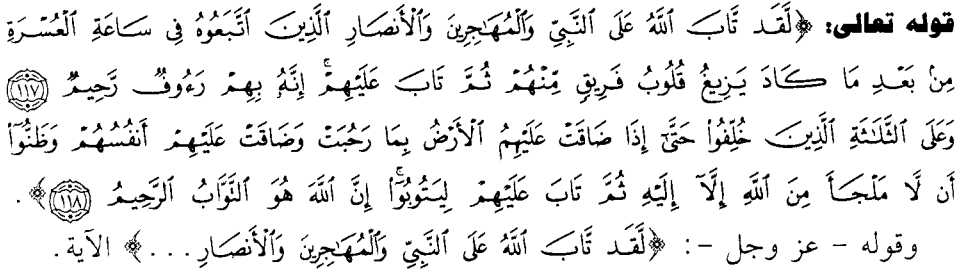 قوله تعالى: ﴿لَّقَد تَّابَ ٱللَّهُ عَلَى ٱلنَّبِيِّ وَٱلْمُهَٰجِرِينَ وَٱلْأَنصَارِ ٱلَّذِينَ ٱتَّبَعُوهُ فِي سَاعَةِ ٱلْعُسْرَةِ
مِنۢ بَعْدِ مَا كَادَ يَزِيغُ قُلُوبُ فَرِيقٍ مِّنْهُمْ ثُمَّ تَابَ عَلَيْهِمْ ۚ إِنَّهُۥ بِهِمْ رَءُوفٌ رَّحِيمٌ ﴿١١٧﴾
وَعَلَى ٱلثَّلَٰثَةِ ٱلَّذِينَ خُلِّفُوا۟ حَتَّىٰٓ إِذَا ضَاقَتْ عَلَيْهِمُ ٱلْأَرْضُ بِمَا رَحُبَتْ وَضَاقَتْ عَلَيْهِمْ أَنفُسُهُمْ وَظَنُّوٓا۟
أَن لَّا مَلْجَأَ مِنَ ٱللَّهِ إِلَّآ إِلَيْهِ ثُمَّ تَابَ عَلَيْهِمْ لِيَتُوبُوٓا۟ ۚ إِنَّ ٱللَّهَ هُوَ ٱلتَّوَّابُ ٱلرَّحِيمُ ﴿١١٨﴾﴾.
وقوله - عز وجل -: ﴿لَّقَد تَّابَ ٱللَّهُ عَلَى ٱلنَّبِيِّ وَٱلْمُهَٰجِرِينَ وَٱلْأَنصَارِ...﴾ الآية.